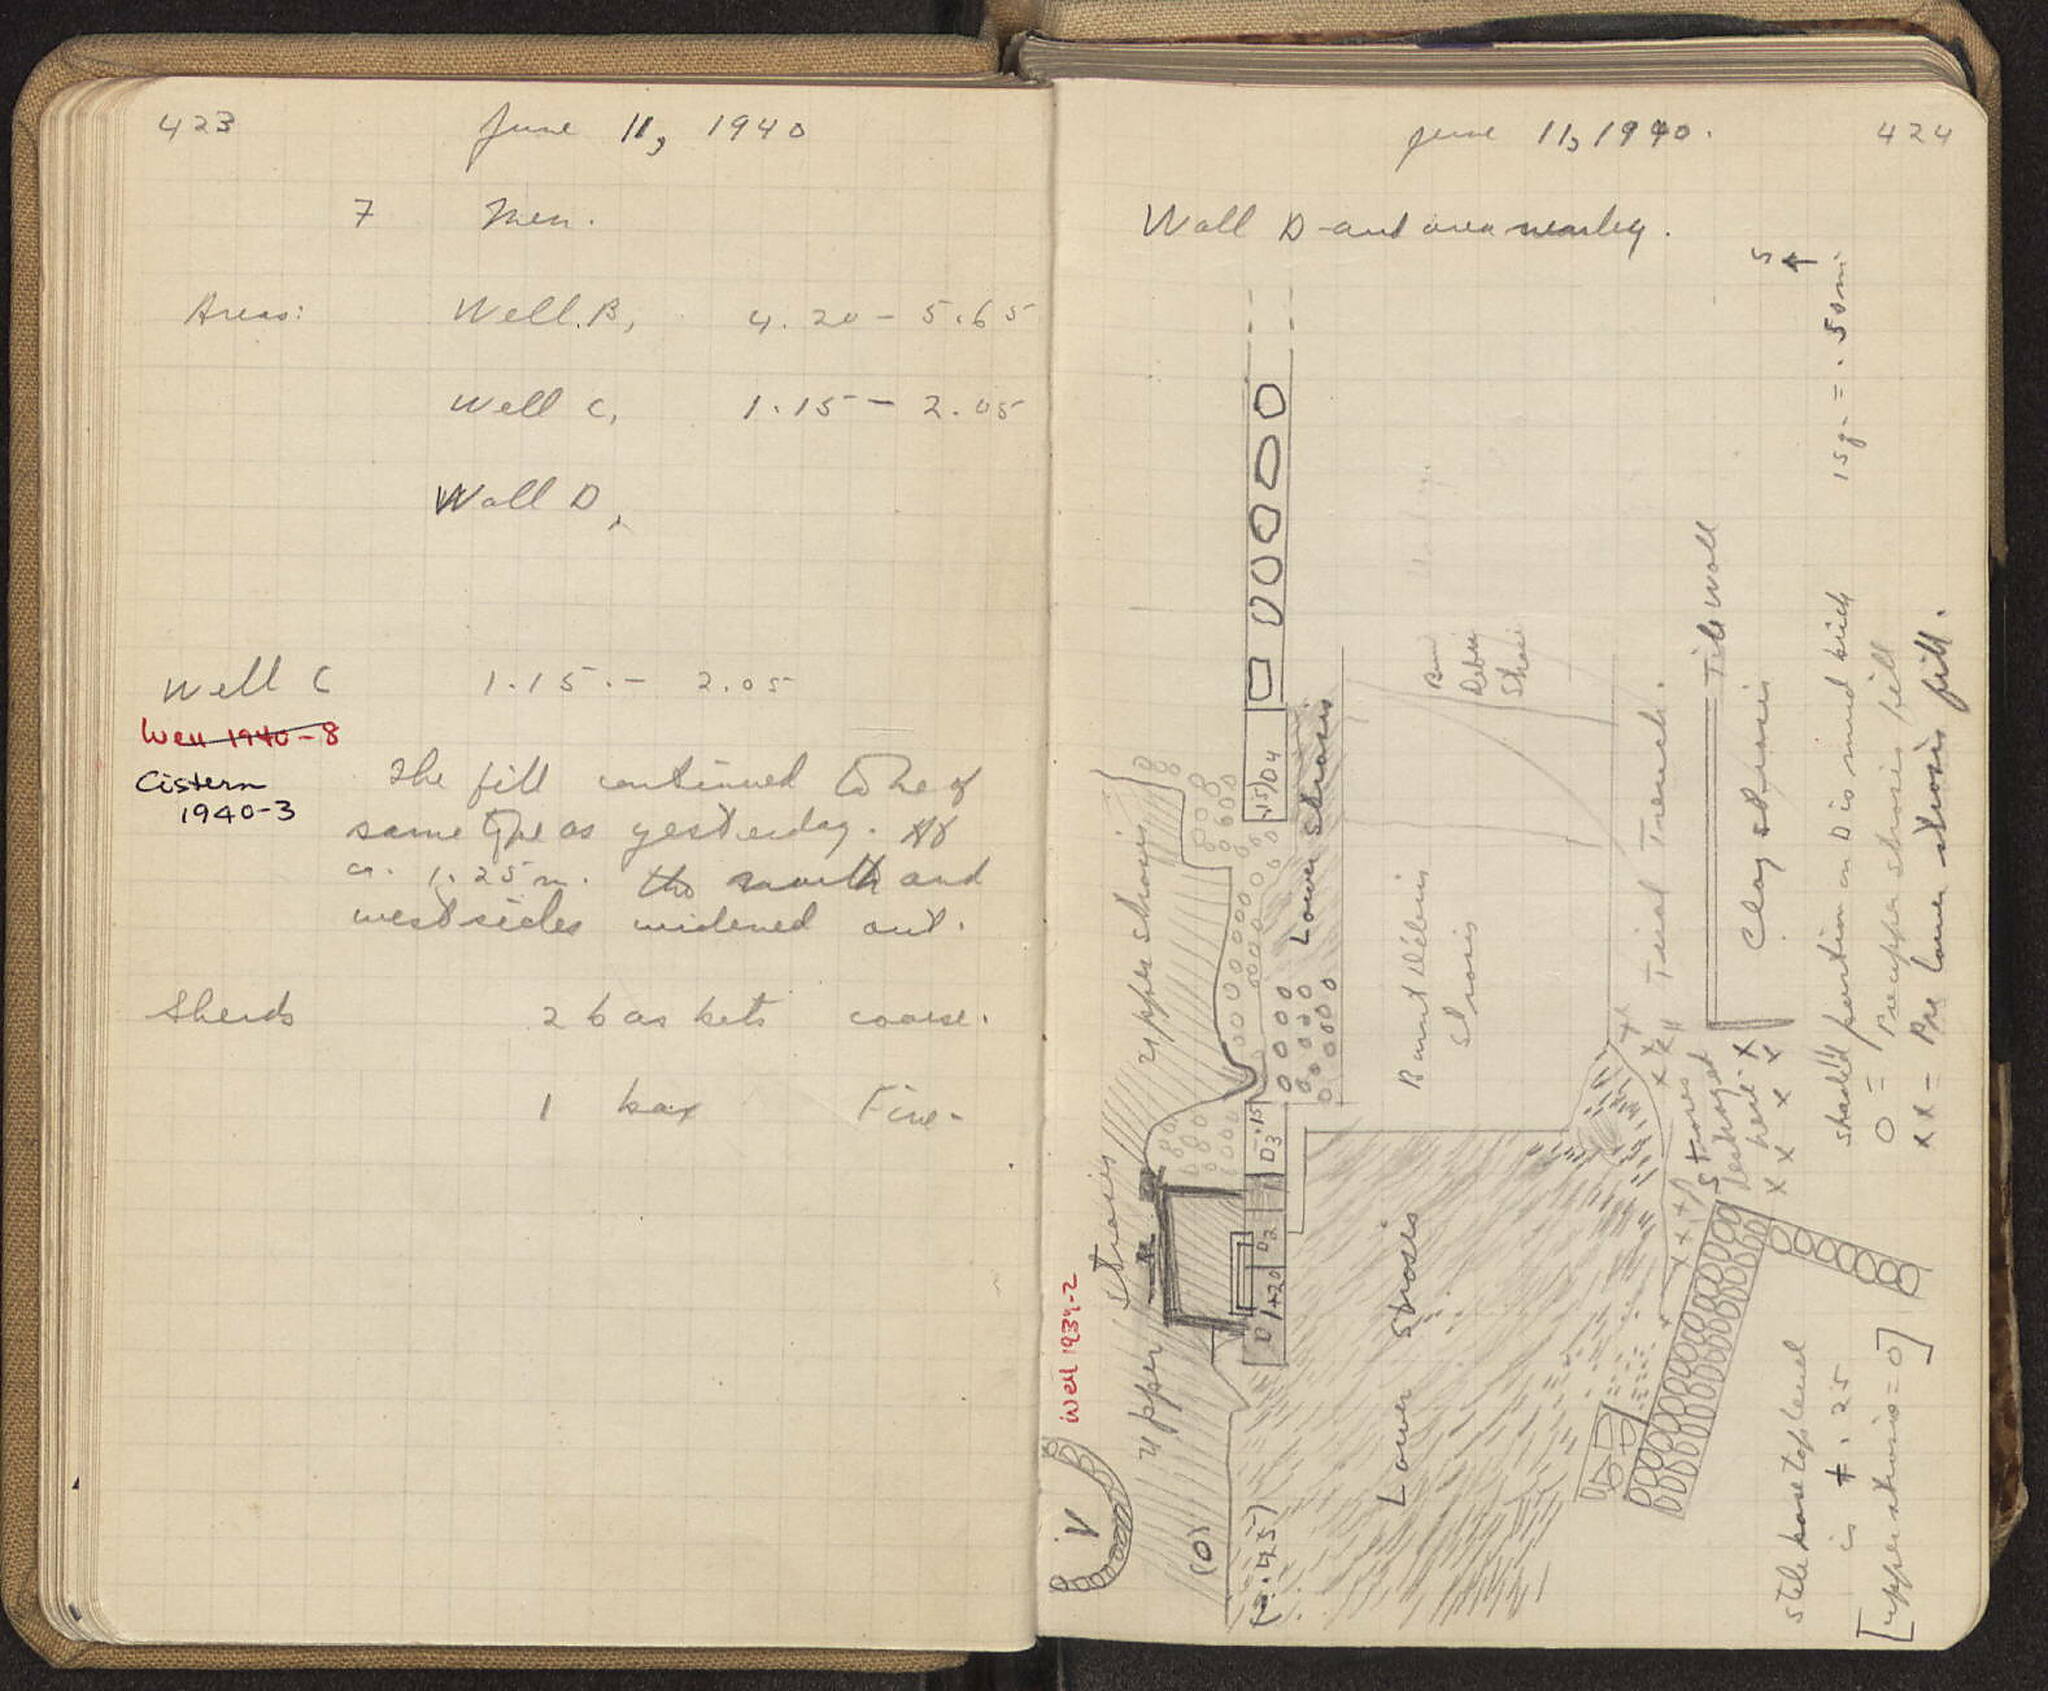 423
June 11, 1940
7 Men.
Areas: Well B, 4.20 - 5.65
Well C, 1.15 - 2.05
Wall D,
Well C 1.15 - 2.05
Well 1940-8
Cistern
1940-3
The fill continued to be of
same type as yesterday. At
ca. 1.25 m. the south and
west sides widened out.
Sherds 2 baskets coarse.
1 box Fine-
June 11, 1940.
424
Wall D and area nearby.
S
1 sq. = .50 m
Upper strosis
.15/D4
Lower strosis
Burnt Debris
Strosis
Trial Trench.
Tile wall
Clay strosis
D3 -.15
D2
D1+20
Stones
destroyed
here
Upper Strosis
Lower Strosis
Well 1939-2
V
(0)
(-.45)
shaded portion on D is mud brick
O = Pre upper strosis fill
xx = Pre lower strosis fill.
stele base top level
is +.25
[upper strosis = 0]